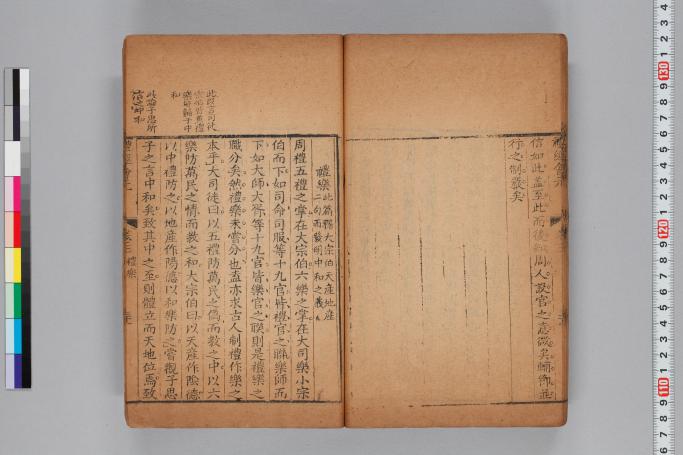 信如此蓋至此而後知周人設官之意微矣
行之制嚴矣
禮樂
此篇釋大宗伯天產地產
二句而發明中和之義
周禮五禮之掌在大宗伯六樂之掌在大司樂小宗
伯而下如司命司服等十九官皆禮官之聯樂師而
下如大師大胥等十九官皆樂官之聯則是禮樂之
職分矣然禮樂未嘗分也盍亦求古人制禮作樂之
本乎大司徒曰以五禮防萬民之偽而敎之中以六
樂防萬民之情而敎之和大宗伯曰以天產作陰德
以中禮防之以地產作陽德以和樂防之嘗觀子思
子之言中和矣致其中之至則體立而天地位焉致
此段言司徒
禮樂